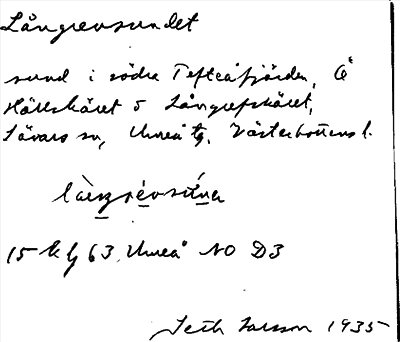 Långrevsundet
sund i södra Tefteåfjärden, Ö
Hällskäret o Långrefskäret,
Sävars sn, Umeå tg, Västerbottens l.
15 k lj 63. Umeå NO D3
Seth Larsson 1935